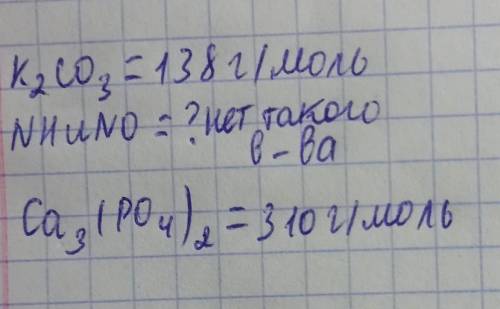 K₂CO₃ = 138 г/моль
NHuNO = ? нет такого
в-ва
Ca₃(PO₄)₂ = 310 г/моль